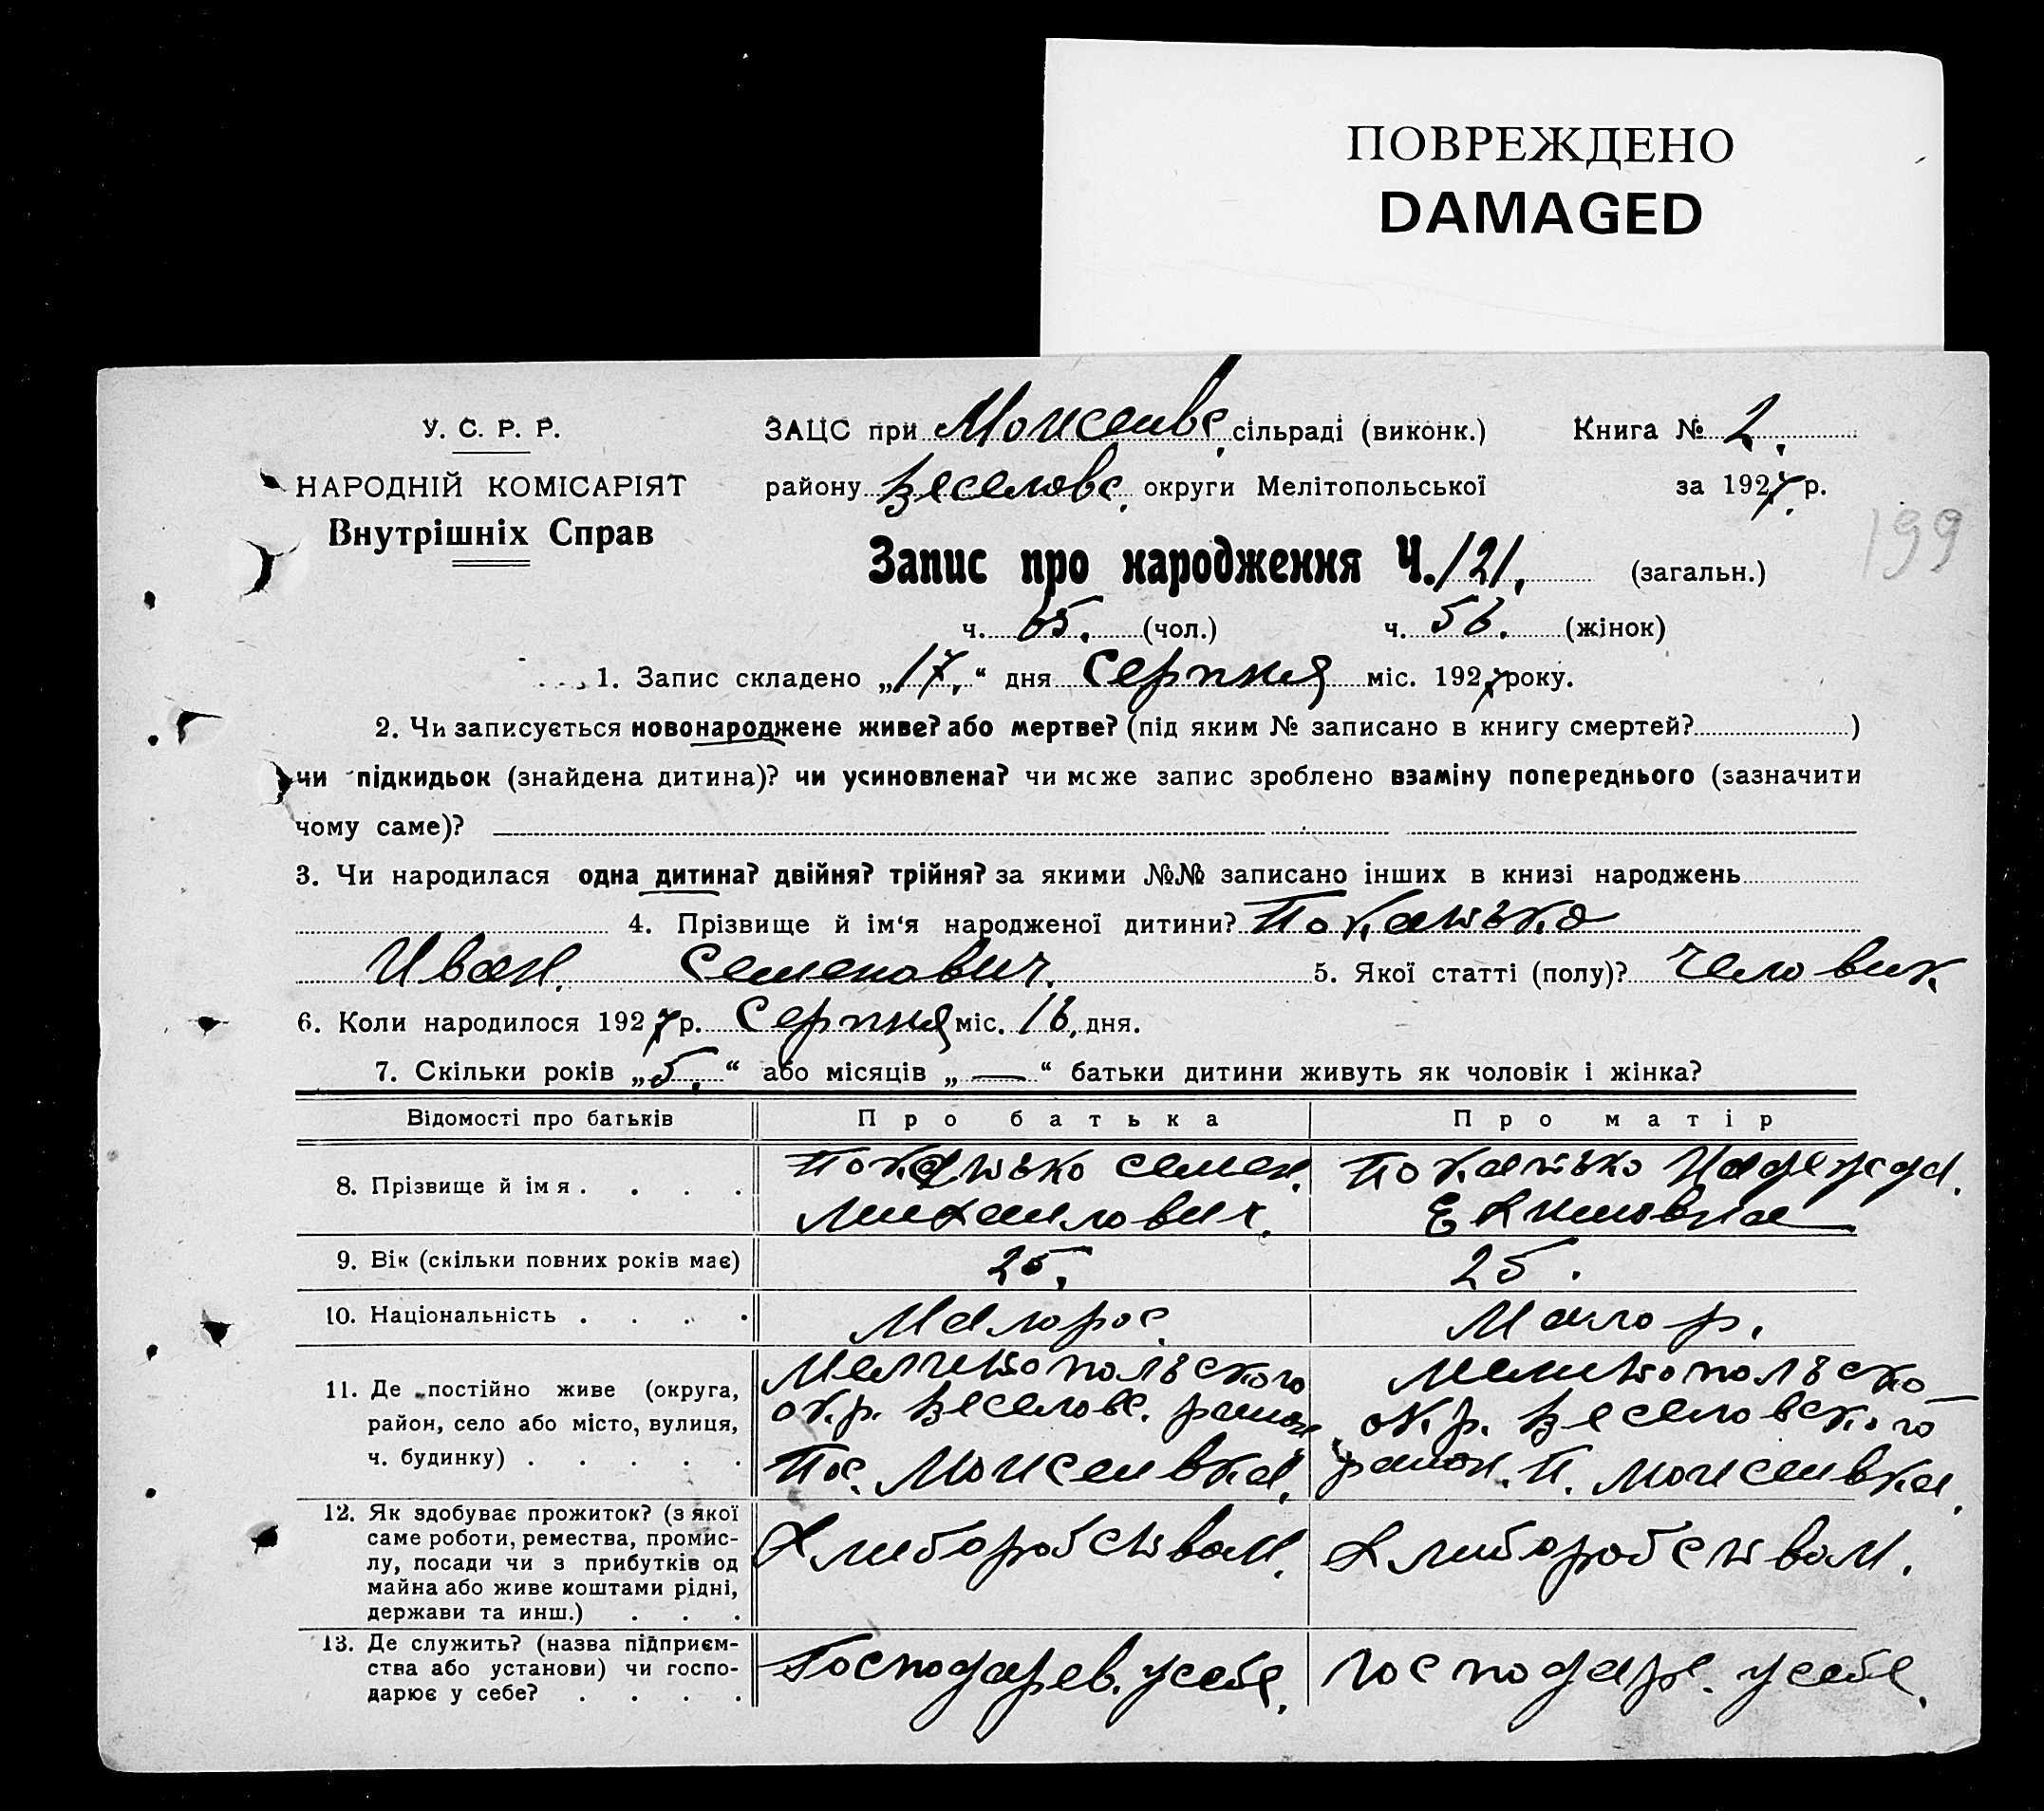 ПОВРЕЖДЕНО
DAMAGED
У. С. Р. Р.
НАРОДНІЙ КОМІСАРІЯТ
Внутрішніх Справ
ЗАЦС при Моисеивс. сільраді (виконк.) Книга № 2.
району Веселовс. округи Мелітопольської за 1927 р.
199
Запис про народження Ч. 121. (загальн.)
ч. 65. (чол.) ч. 56. (жінок)
1. Запис складено „17.“ дня Серпня міс. 1927 року.
2. Чи записується новонароджене живе? або мертве? (під яким № записано в книгу смертей? )
чи підкидьок (знайдена дитина)? чи усиновлена? чи може запис зроблено взаміну попереднього (зазначити
чому саме)?
3. Чи народилася одна дитина? двійня? трійня? за якими №№ записано інших в книзі народжень
4. Прізвище й ім‘я народженої дитини? Покатько
Иван. Семенович. 5. Якої статті (полу)? Человик
6. Коли народилося 1927 р. Серпня міс. 16. дня.
7. Скільки років „5.“ або місяців „—“ батьки дитини живуть як чоловік і жінка?
Відомості про батьків Про батька Про матір
8. Прізвище й імя . . . .
Покатько Семен.
Михаилович.
Покатько Надежда.
Екимовна
9. Вік (скільки повних років має) 25. 25.
10. Національність . . . . Малорос. Малор.
11. Де постійно живе (округа,
район, село або місто, вулиця,
ч. будинку) . . . . .
Мелитопольского
окр. Веселовс. район
Пос. Моисеивка.
Мелитопольско
окр. Веселовского
район. П. Моисеивка.
12. Як здобуває прожиток? (з якої
саме роботи, ремества, промис-
лу, посади чи з прибутків од
майна або живе коштами рідні,
держави та инш.) . . .
Хлиборобством.
Хлиборобством.
13. Де служить? (назва підприєм-
ства або установи) чи госпо-
дарює у себе? . . . .
Господарев. у себе.
Господаре. у себе.